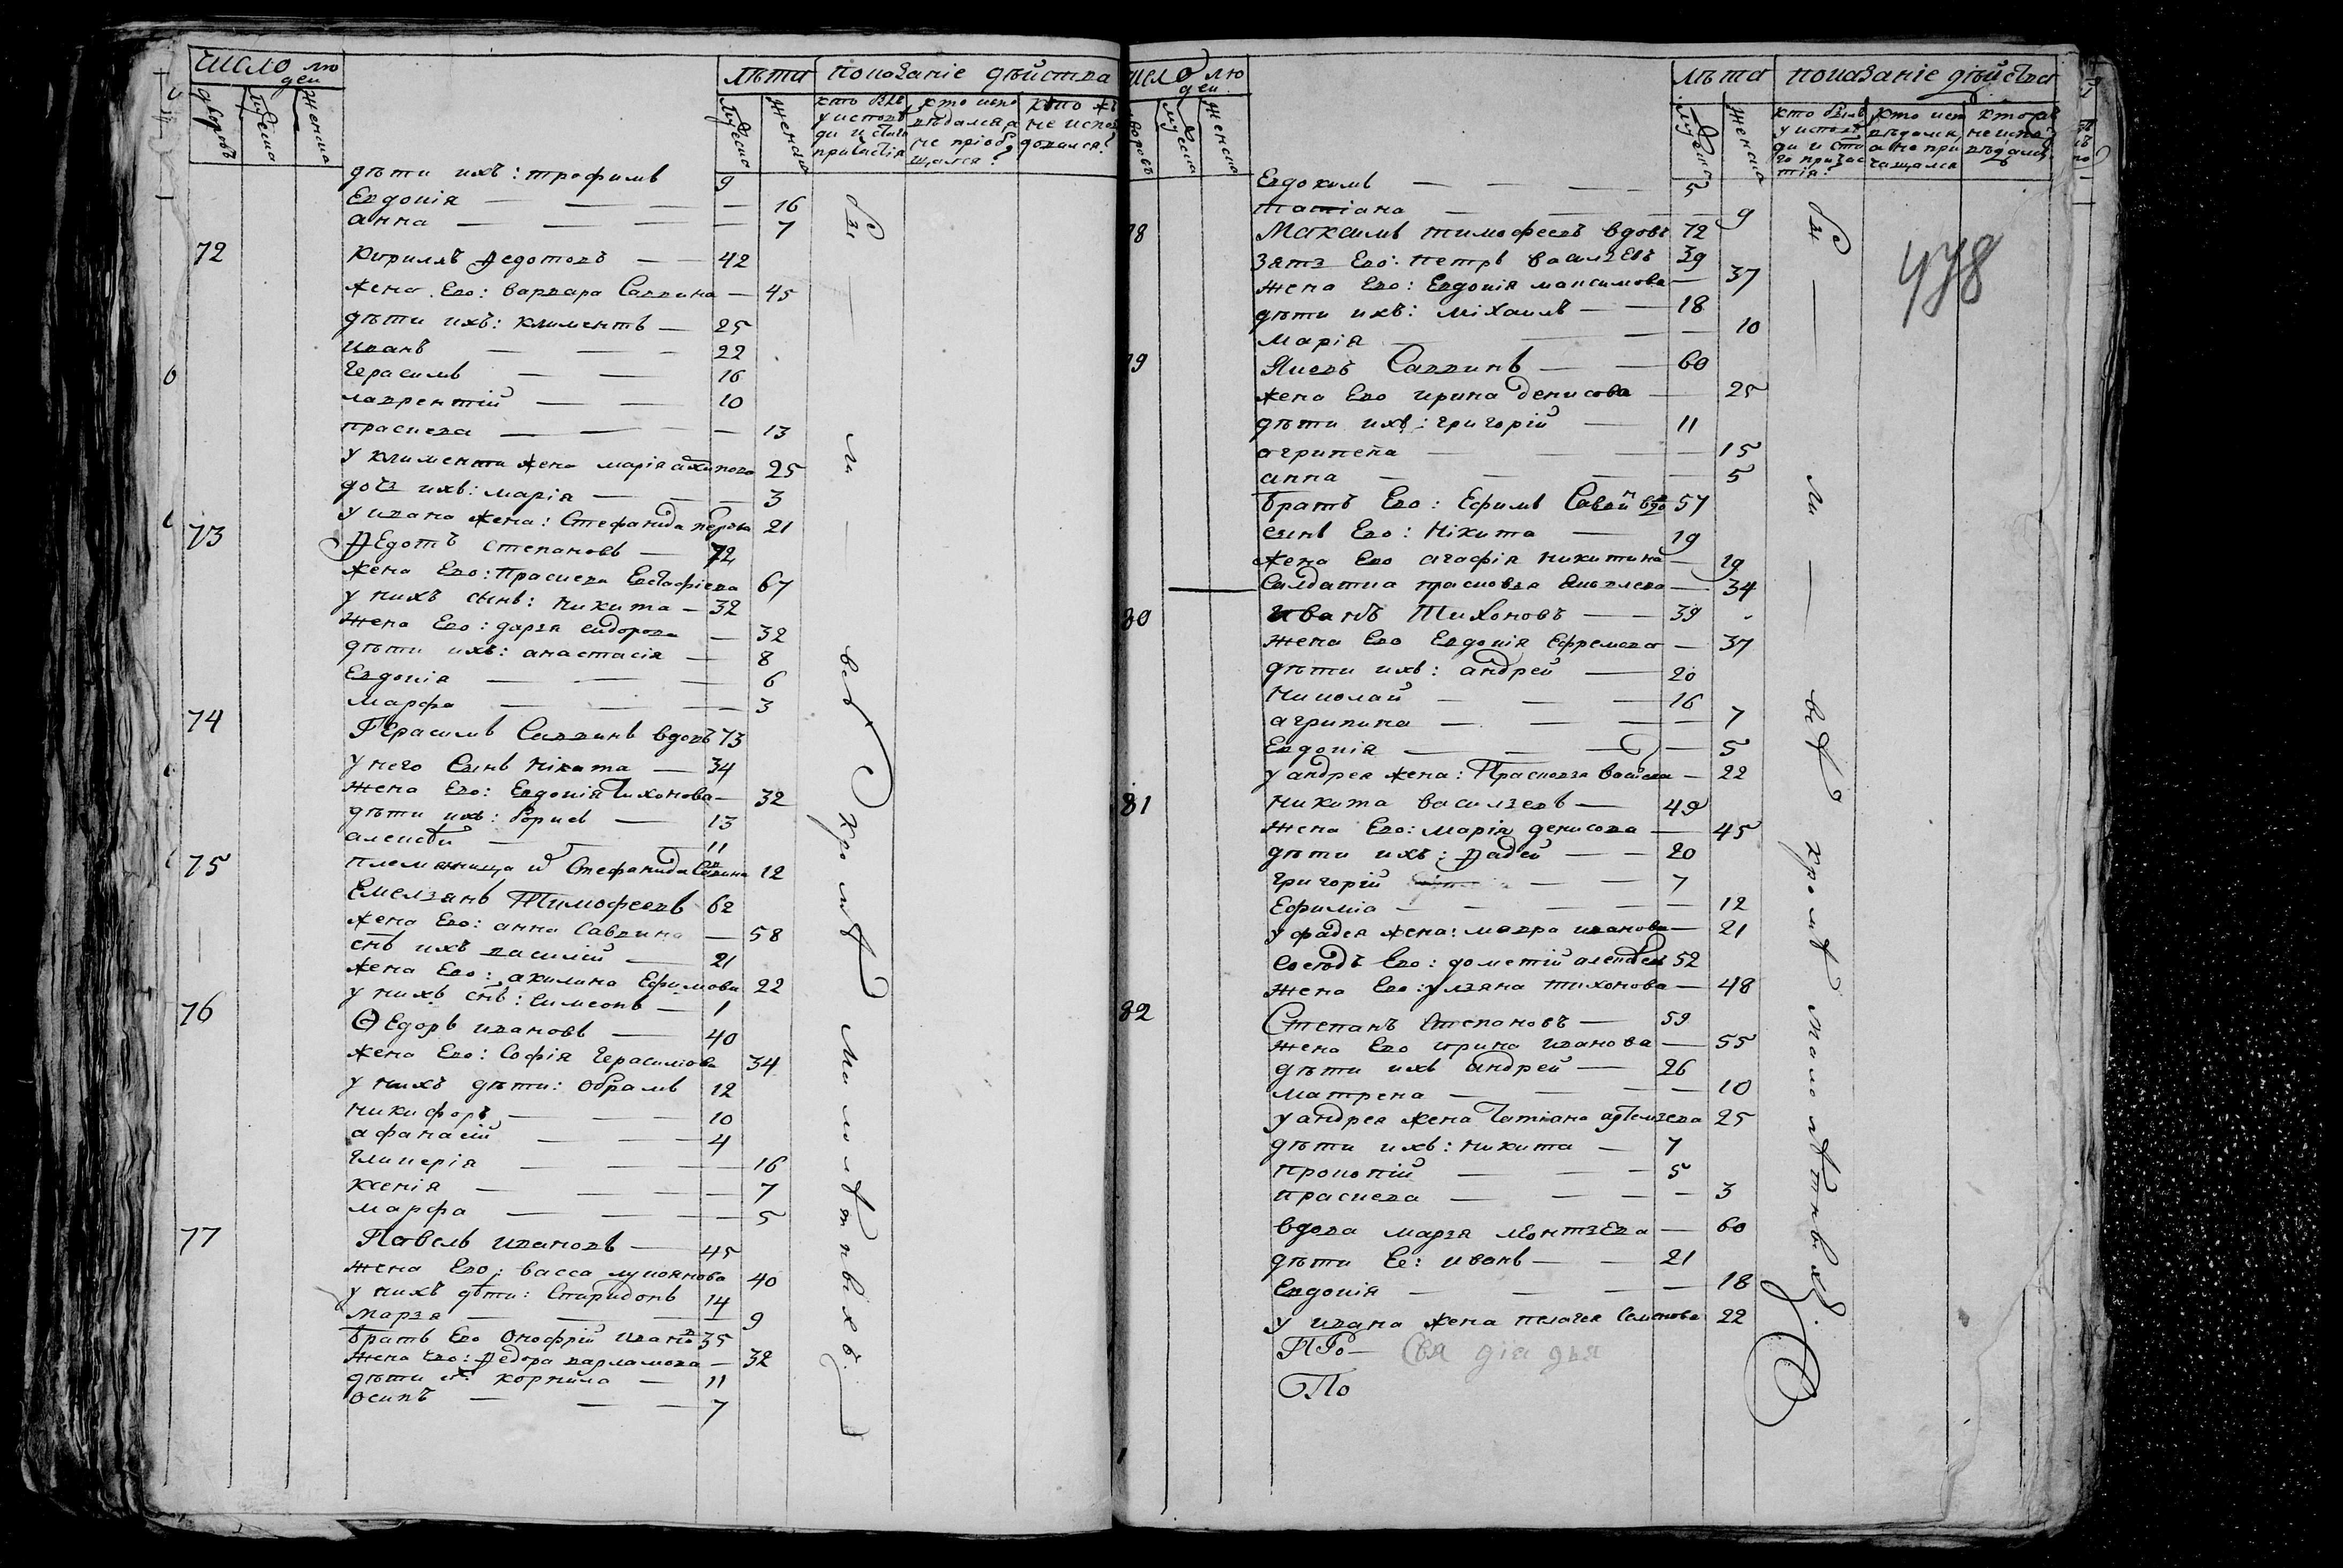 число лю
дей
лѣта показаніе дѣйства
дворовъ мужеска женска
мужеска женска
кто былъ у исповѣди и святаго причастія
кто исповѣдался а не пріобщался?
кто же не исповѣдовался?
дѣти ихъ: трофимъ 9
Евдокія — — — — 16
анна — — — — 7
72 Кирилъ Ѳедотовъ — 42
жена Его: варвара Саввина — 45
дѣти ихъ: климентъ — 25
иванъ — — — 22
герасимъ — — 16
лаврентій — — 10
праскева — — — 13
у климента жена марія архипова 25
дочь ихъ: марія — — — 3
у ивана жена: Стефанида 21
73 Ѳедотъ степановъ — 72
жена Его: Праскева Евстафіева 67
у нихъ сынъ: никита — 32
жена Его: дарья сидорова — 32
дѣти ихъ: анастасія — 8
Евдокія — — — 6
марфа — — — 3
74 Герасимъ Саввинъ вдовъ 73
у него Сынъ Нікита — 34
жена Его: Евдокія Тихонова — 32
дѣти ихъ: борисъ — 13
алексѣй — — 11
75 племянница Стефанида Савина 12
Емельянъ Тимофеевъ 62
жена Его: анна Саввина — 58
снъ ихъ василій — 21
жена Его: акилина Ефимова 22
у нихъ снъ: Симеонъ — 1
76 Ѳедоръ ивановъ — 40
жена Его: Софія Герасимова 34
у нихъ дѣти: Обрамъ 12
никифоръ — — — 10
афанасій — — — 4
гликерія — — — — 16
ксенія — — — — 7
марфа — — — — 5
77 Павелъ ивановъ — 45
жена Его: васса лукоянова 40
у нихъ дѣти: Спиридонъ 14
марья — — — — 9
братъ Его Онофрій Иванов 35
жена Его: Ѳедора варламова — 32
дѣти их: корнила — 11
осипъ — — — 7
были всѣ кромѣ малолѣтнвіхъ.
число лю
дей
лѣта показаніе дѣйства
дворовъ мужеска женска
мужеска женска
кто былъ у исповѣди и стаго причастія?
478
Евдокимъ — — — 5
татіана — — — — 9
78 Максимъ тимофеевъ вдовъ 72
зять Его: петръ васильевъ 39
жена Его: Евдокія максимова — 37
дѣти ихъ: міхаилъ — — 18
марія — — — 10
79 Яковъ Саввинъ — — 60
жена Его ирина денисова — 25
дѣти ихъ: григорій — 11
агрипена — — — 15
анна — — — 5
братъ Его: Ефимъ Савин вдо 57
сынъ Его: Нікита — 19
жена Его агафія никитина — 19
Салдатка прасковья — 34
80 Иванъ Тихоновъ — 39
жена Его Евдокія Ефремова — 37
дѣти ихъ: андрей — 20
николай — — — 16
агрипина — — — — 7
Евдокія — — — — 5
у андрея жена: Прасковья — 22
81 никита васильевъ — 49
жена Его: марія денисова — 45
дѣти ихъ: Ѳадей — — 20
григорій — — 7
Ефимія — — — — 12
у фадея жена: мавра иванова — 21
Сосѣдъ Его: дометій алексѣевъ 52
жена Его: ульяна тихонова — 48
82 Степанъ Степановъ — 59
жена Его ирина иванова — 55
дѣти ихъ андрей — 26
матрена — — — 10
у андрея жена татіана артемьева 25
дѣти ихъ: никита — 7
прокопій — — — 5
праскева — — — — 3
вдова марья Леонтьева — 60
дѣти Ее: иванъ — — 21
Евдокія — — — — 18
у ивана жена пелагея Семенова 22
ПРо—
По
были всѣ кромѣ малолѣтнвіхъ.